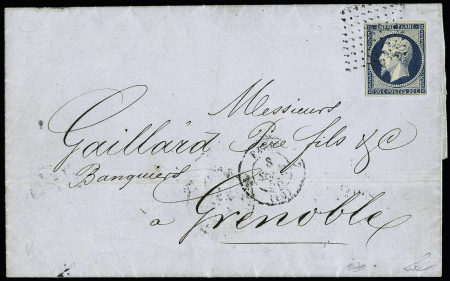 EMPIRE FRANC
20 C POSTES 20 C
Messieurs
Gaillard Père fils & C
Banquiers
à Grenoble